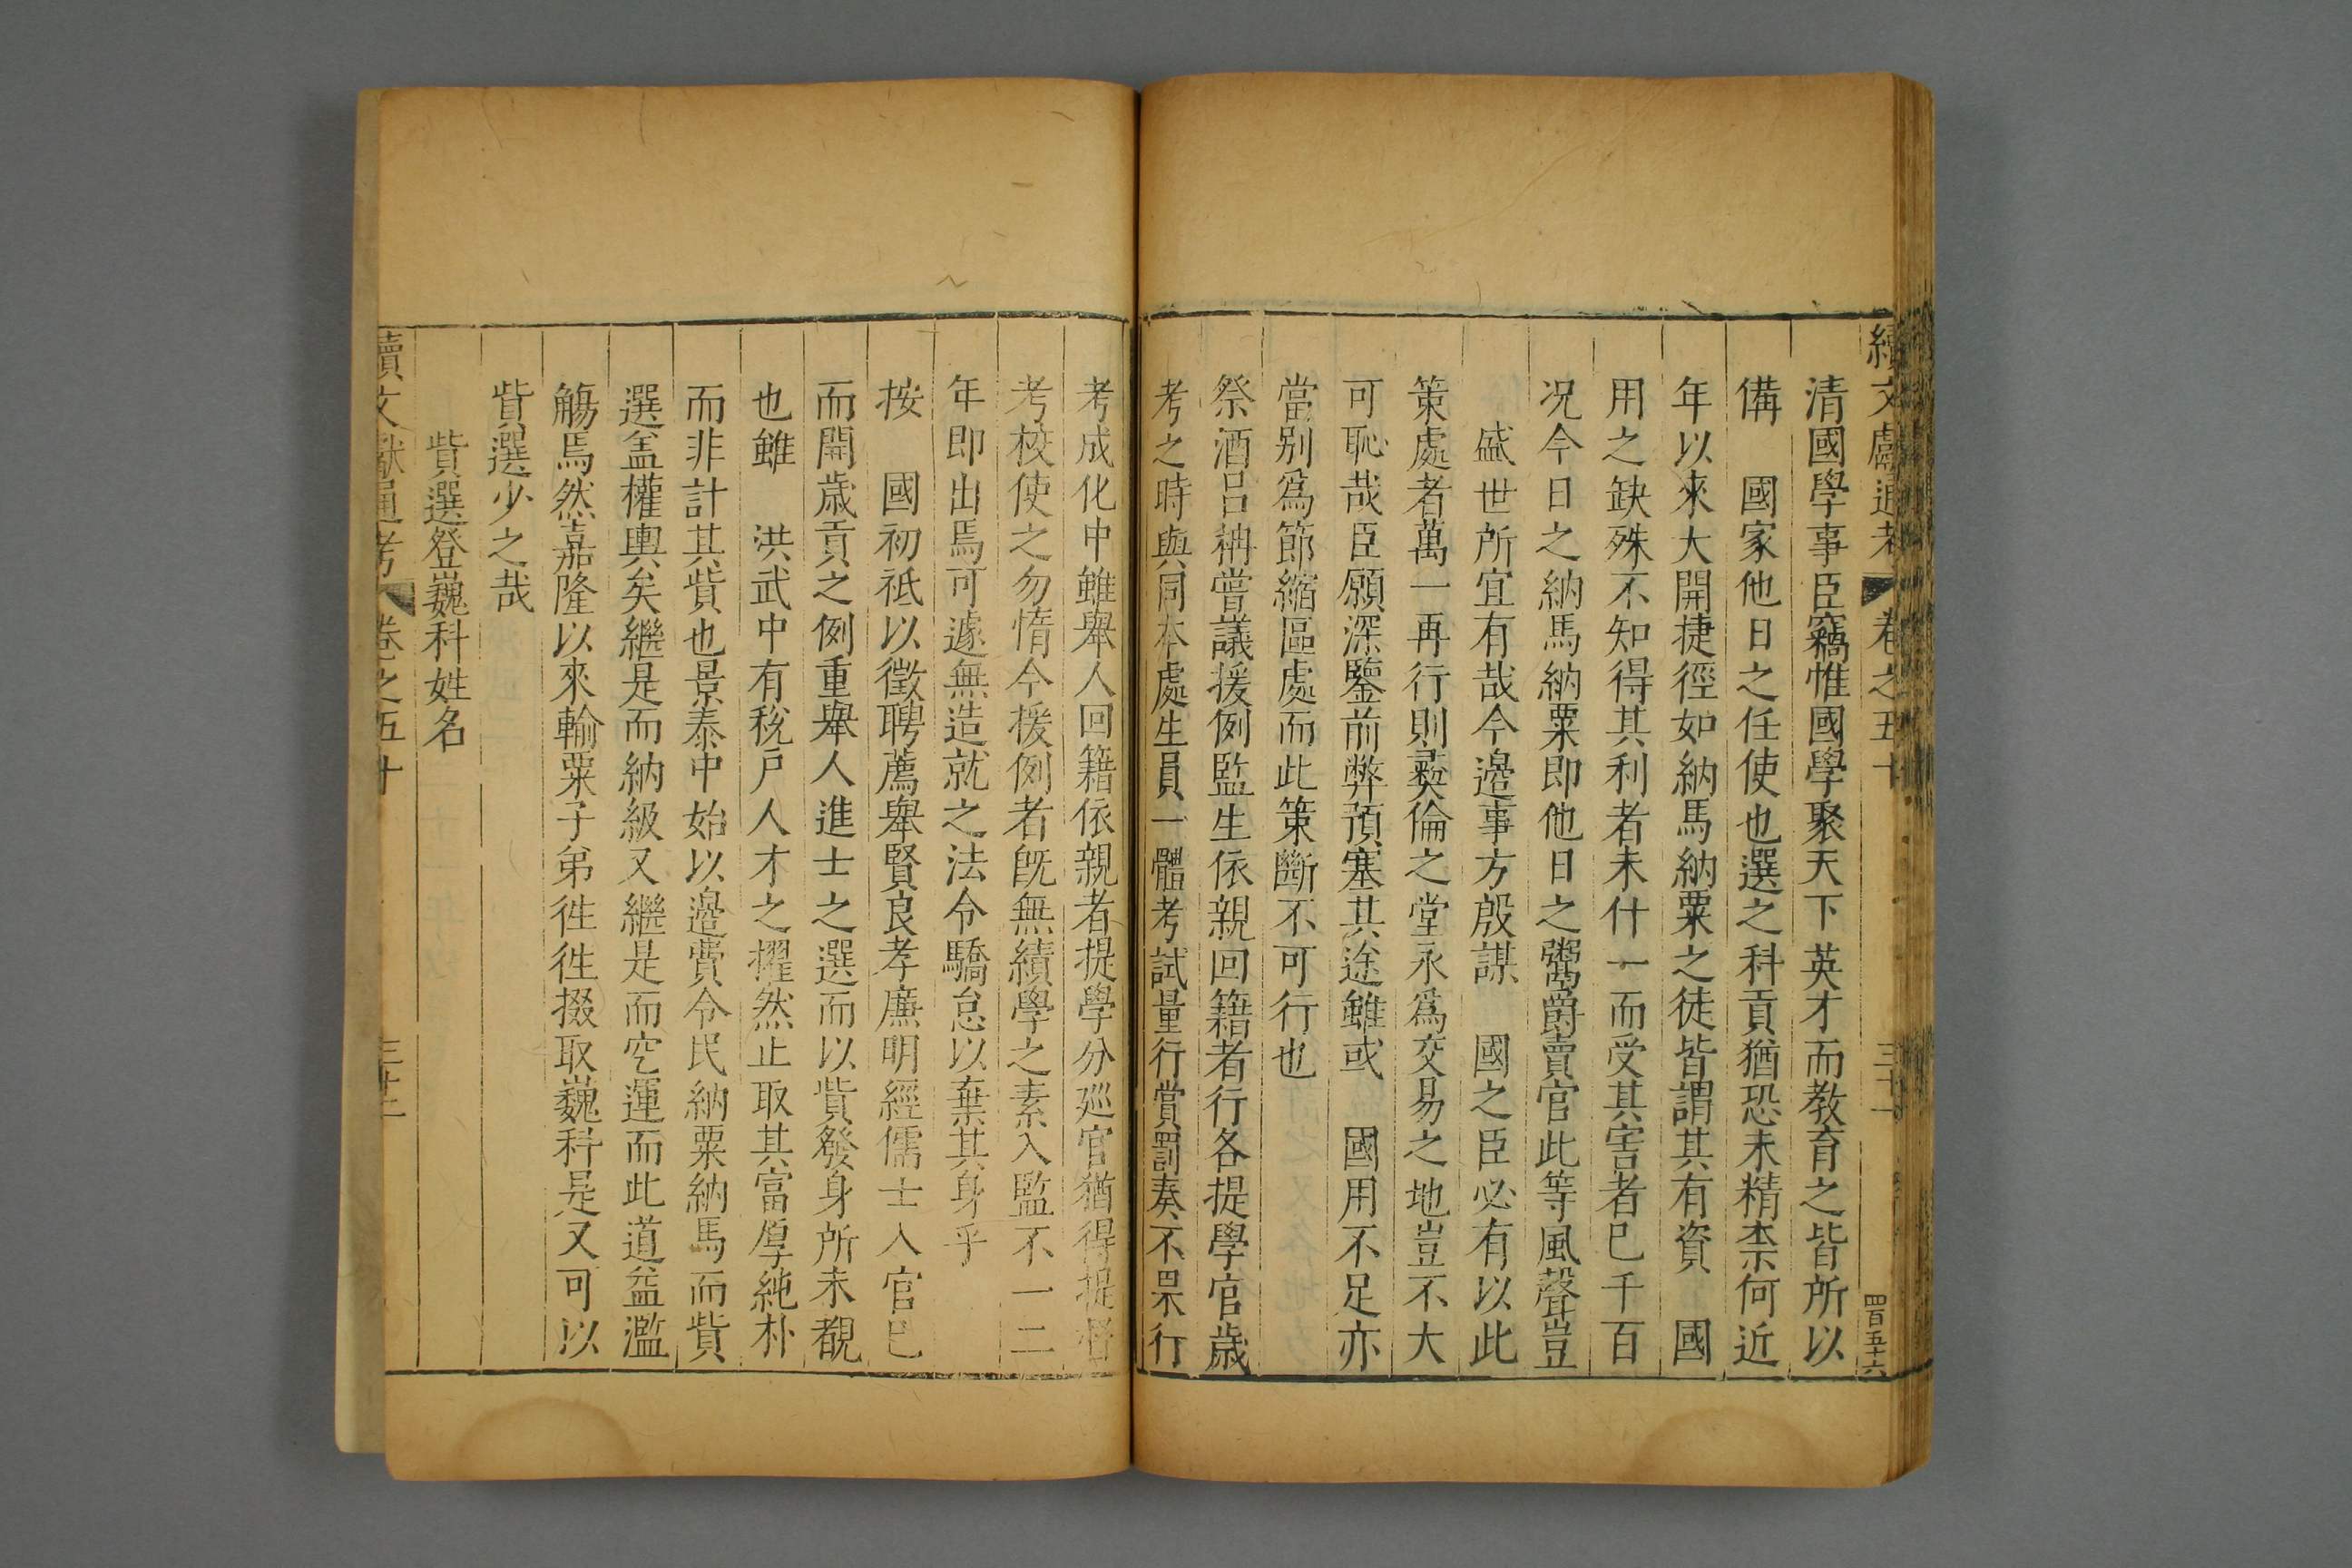 續文獻通考 卷之五十 三十一 四百五十六
清國學事臣竊惟國學聚天下英才而教育之皆所以
備 國家他日之任使也選之科貢猶恐未精柰何近
年以來大開捷徑如納馬納粟之徒皆謂其有資 國
用之缺殊不知得其利者未什一而受其害者已千百
况今日之納馬納粟即他日之鬻爵賣官此等風聲豈
盛世所宜有哉今邉事方殷謀 國之臣必有以此
策處者萬一再行則彛倫之堂永爲交易之地豈不大
可恥哉臣願深鑒前弊預塞其途雖或 國用不足亦
當别爲節縮區處而此策斷不可行也
祭酒呂柟嘗議援例監生依親回籍者行各提學官歲
考之時與同本處生員一體考試量行賞罰奏不果行
考成化中雖舉人回籍依親者提學分廵官猶得提督
考校使之勿惰今援例者旣無績學之素入監不一二
年即出焉可遽無造就之法令驕怠以棄其身乎
按 國初祗以徵聘薦舉賢良孝亷明經儒士入官已
而開歲貢之例重舉人進士之選而以貲發身所未覩
也雖 洪武中有稅戶人才之擢然止取其富厚純朴
而非計其貲也景泰中始以邉費令民納粟納馬而貲
選盖權輿矣繼是而納級又繼是而空運而此道益濫
觴焉然嘉隆以來輸粟子弟徃徃掇取巍科是又可以
貲選少之哉
貲選登巍科姓名
續文獻通考 卷之五十 三十二